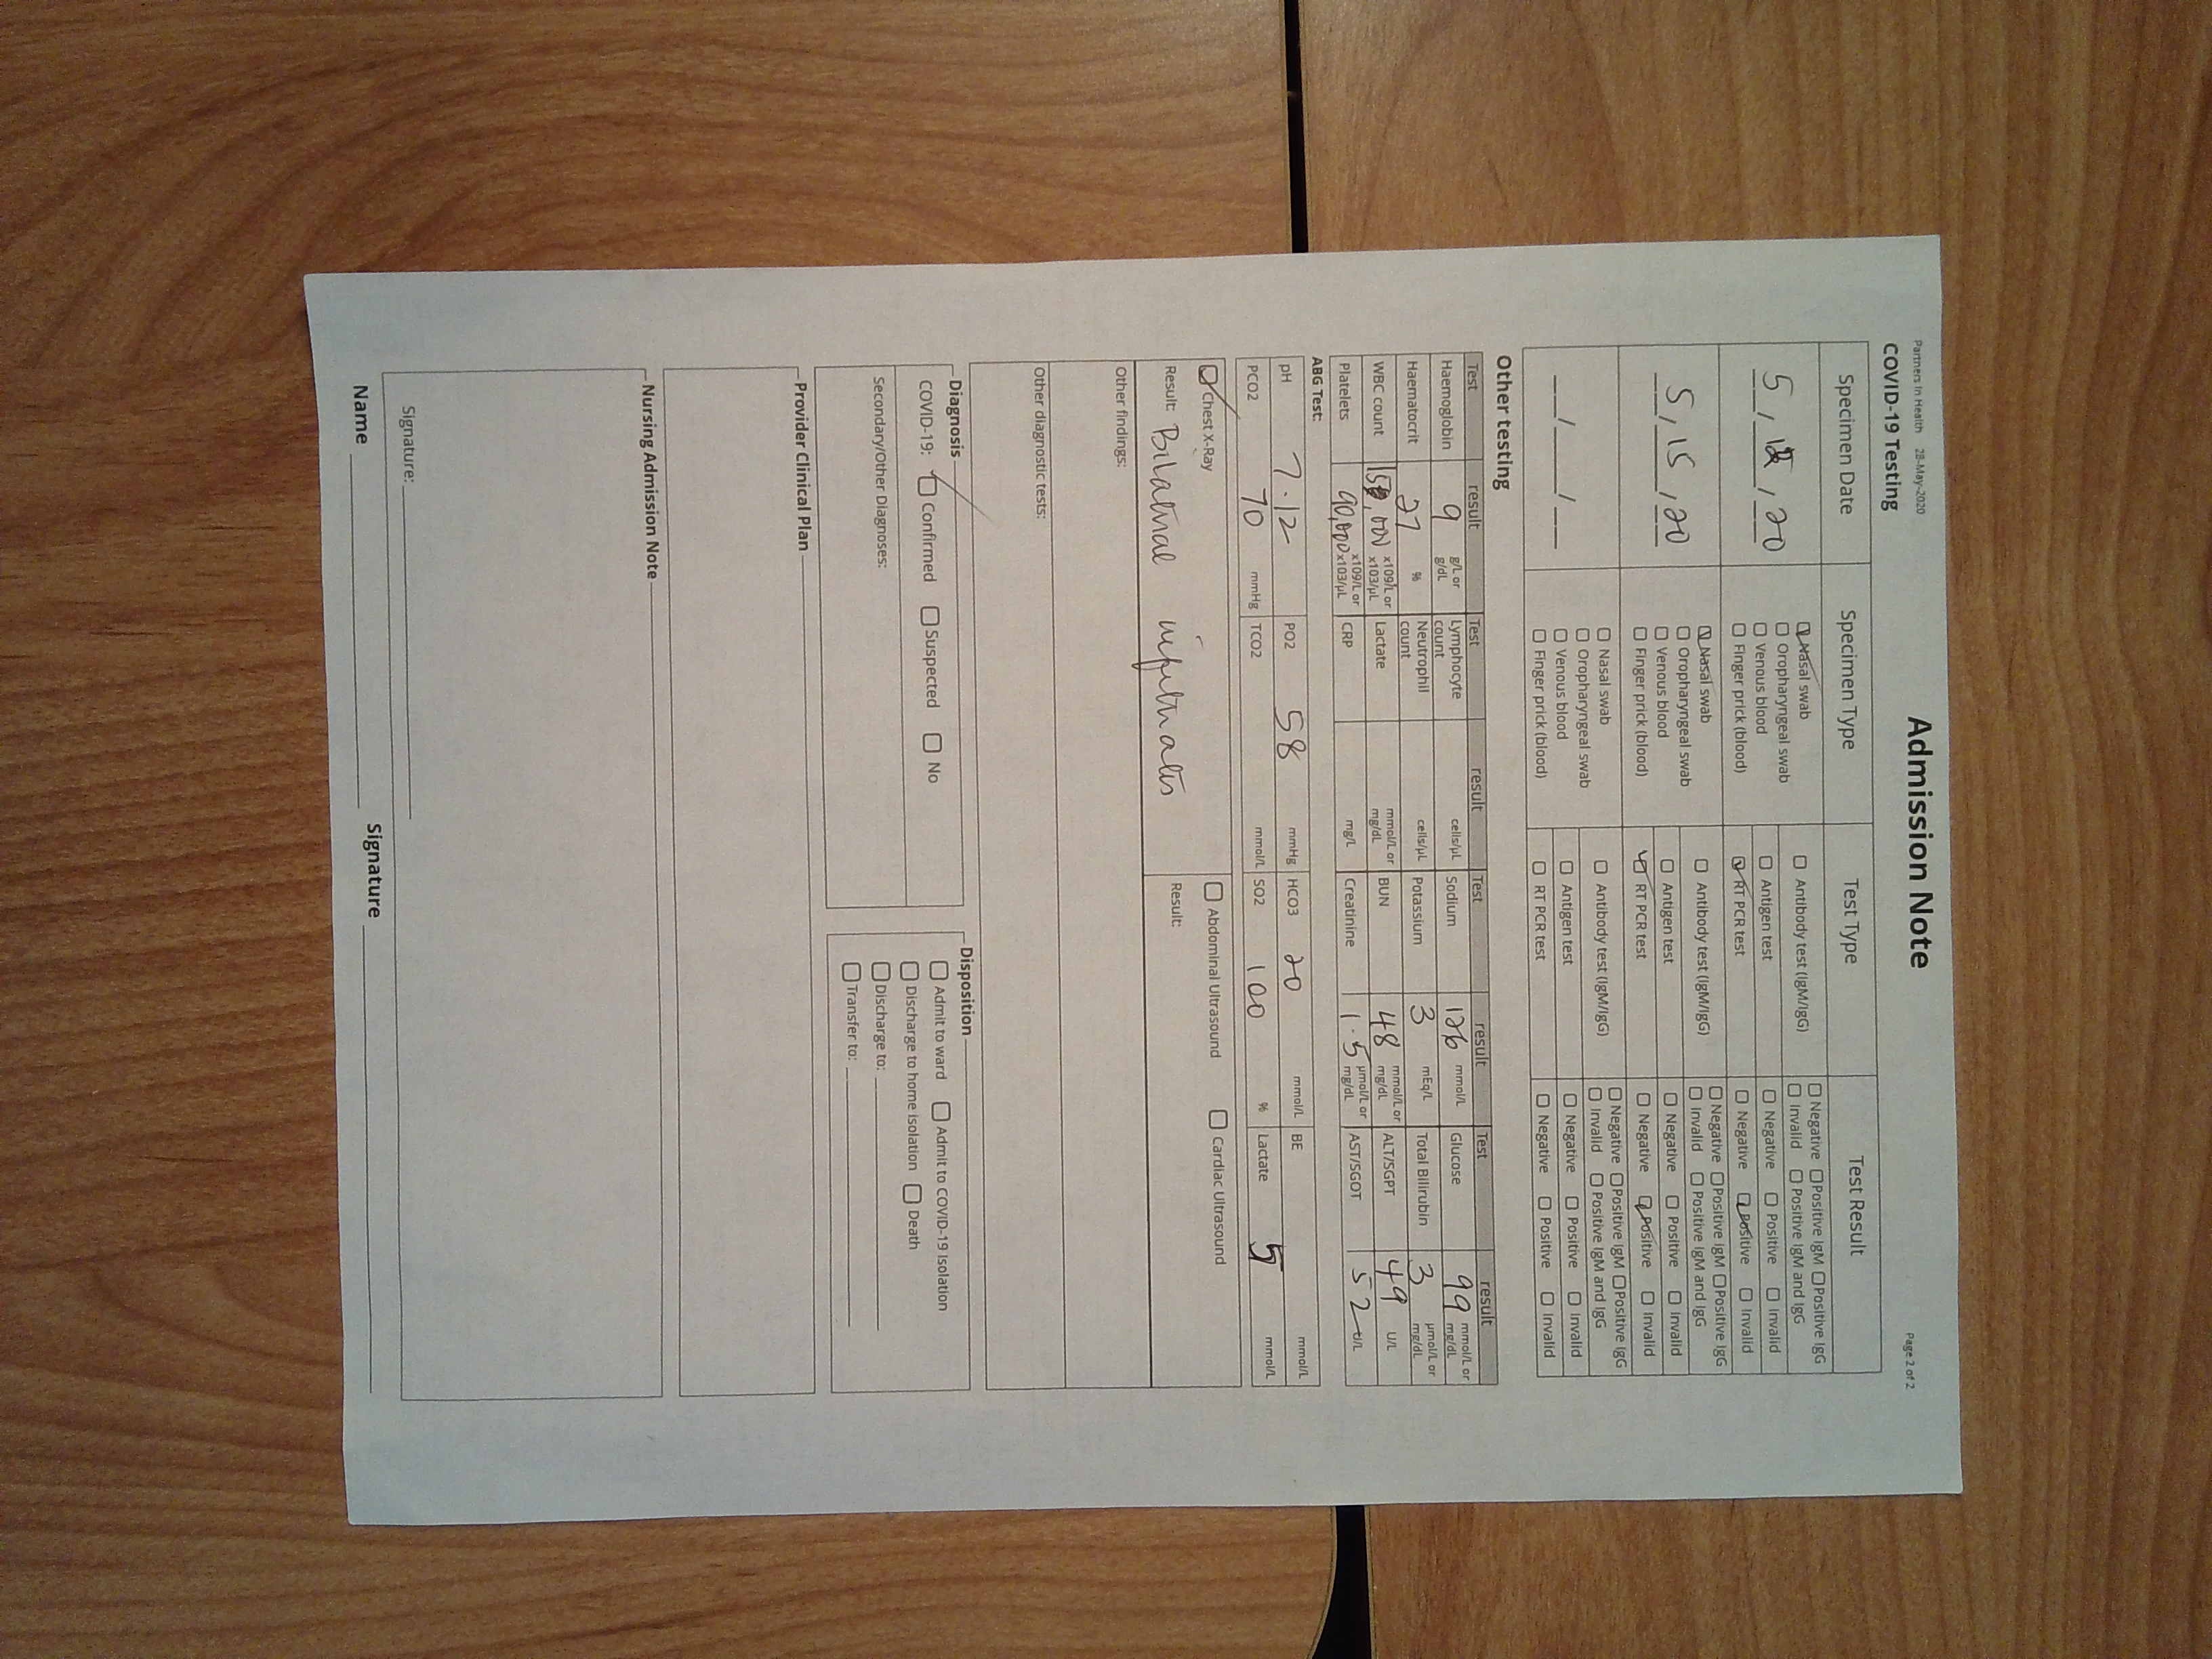 Partners In Health 28-May-2020
Admission Note
Page 2 of 2
COVID-19 Testing
Specimen Date Specimen Type Test Type Test Result
5 / / 20
Nasal swab
Oropharyngeal swab
Venous blood
Finger prick (blood)
Antibody test (IgM/IgG)
Negative Positive IgM Positive IgG
Invalid Positive IgM and IgG
Antigen test Negative Positive Invalid
RT PCR test Negative Positive Invalid
5 / 15 / 20
Nasal swab
Oropharyngeal swab
Venous blood
Finger prick (blood)
Antibody test (IgM/IgG)
Negative Positive IgM Positive IgG
Invalid Positive IgM and IgG
Antigen test Negative Positive Invalid
RT PCR test Negative Positive Invalid
__/__/__
Nasal swab
Oropharyngeal swab
Venous blood
Finger prick (blood)
Antibody test (IgM/IgG)
Negative Positive IgM Positive IgG
Invalid Positive IgM and IgG
Antigen test Negative Positive Invalid
RT PCR test Negative Positive Invalid
Other testing
Test result Test result Test result Test result
Haemoglobin 9 g/L or g/dL Lymphocyte count cells/µL Sodium 126 mmol/L Glucose 99 mmol/L or mg/dL
Haematocrit 27 % Neutrophil count cells/µL Potassium 3 mEq/L Total Bilirubin 3 µmol/L or mg/dL
WBC count x109/L or x103/µL Lactate mmol/L or mg/dL BUN 48 mmol/L or mg/dL ALT/SGPT 49 U/L
Platelets 90,000 x109/L or x103/µL CRP mg/L Creatinine 1.5 µmol/L or mg/dL AST/SGOT 52 U/L
ABG Test:
pH 7.12 PO2 58 mmHg HCO3 20 mmol/L BE mmol/L
PCO2 70 mmHg TCO2 mmol/L SO2 100 % Lactate 5 mmol/L
Chest X-Ray Abdominal Ultrasound Cardiac Ultrasound
Result: Bilateral infiltrates Result:
Other findings:
Other diagnostic tests:
Diagnosis
COVID-19: Confirmed Suspected No
Secondary/Other Diagnoses:
Disposition
Admit to ward Admit to COVID-19 Isolation
Discharge to home isolation Death
Discharge to:
Transfer to:
Provider Clinical Plan
Nursing Admission Note
Signature:
Name Signature